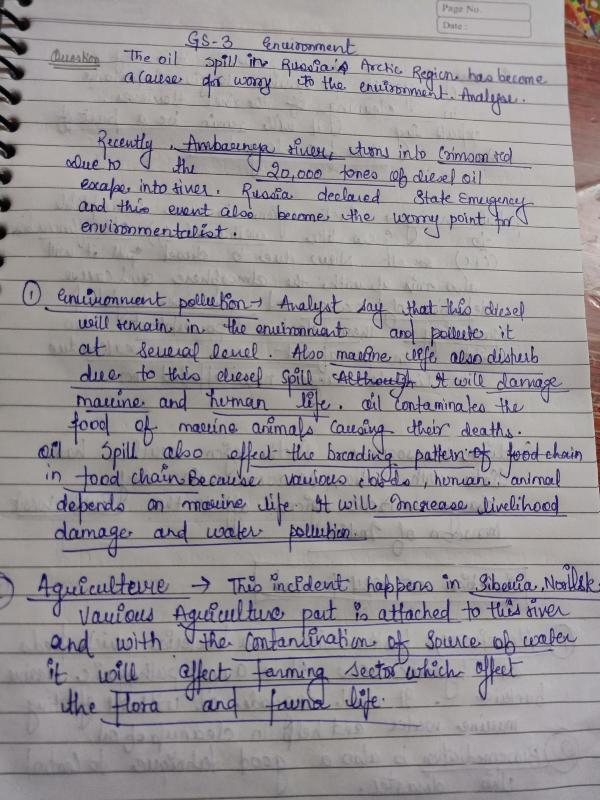 Page No.
Date:
GS-3 Environment
Question The oil spill in Russia's Arctic Region has become
a cause for worry to the environment. Analyse.
Recently, Ambarnaya river, turns into Crimson red
due to the 20,000 tones of diesel oil
escape into river. Russia declared State Emergency
and this event also become the worry point for
environmentalist.
① Environment pollution → Analyst say that this diesel
will remain in the environment and pollute it
at several level. Also marine life also disturb
due to this diesel spill. Although it will damage
marine and human life. oil contaminates the
food of marine animals causing their deaths.
oil spill also effect the breading pattern of food chain
in food chain Because various birds, human, animal
depends on marine life. It will increase livelihood
damage and water pollution.
Aguiculture → This incident happens in Siberia, Norilsk.
Various Aguiculture part is attached to this river
and with the contamination of source of water
it will affect farming sector which effect
the flora and fauna life.